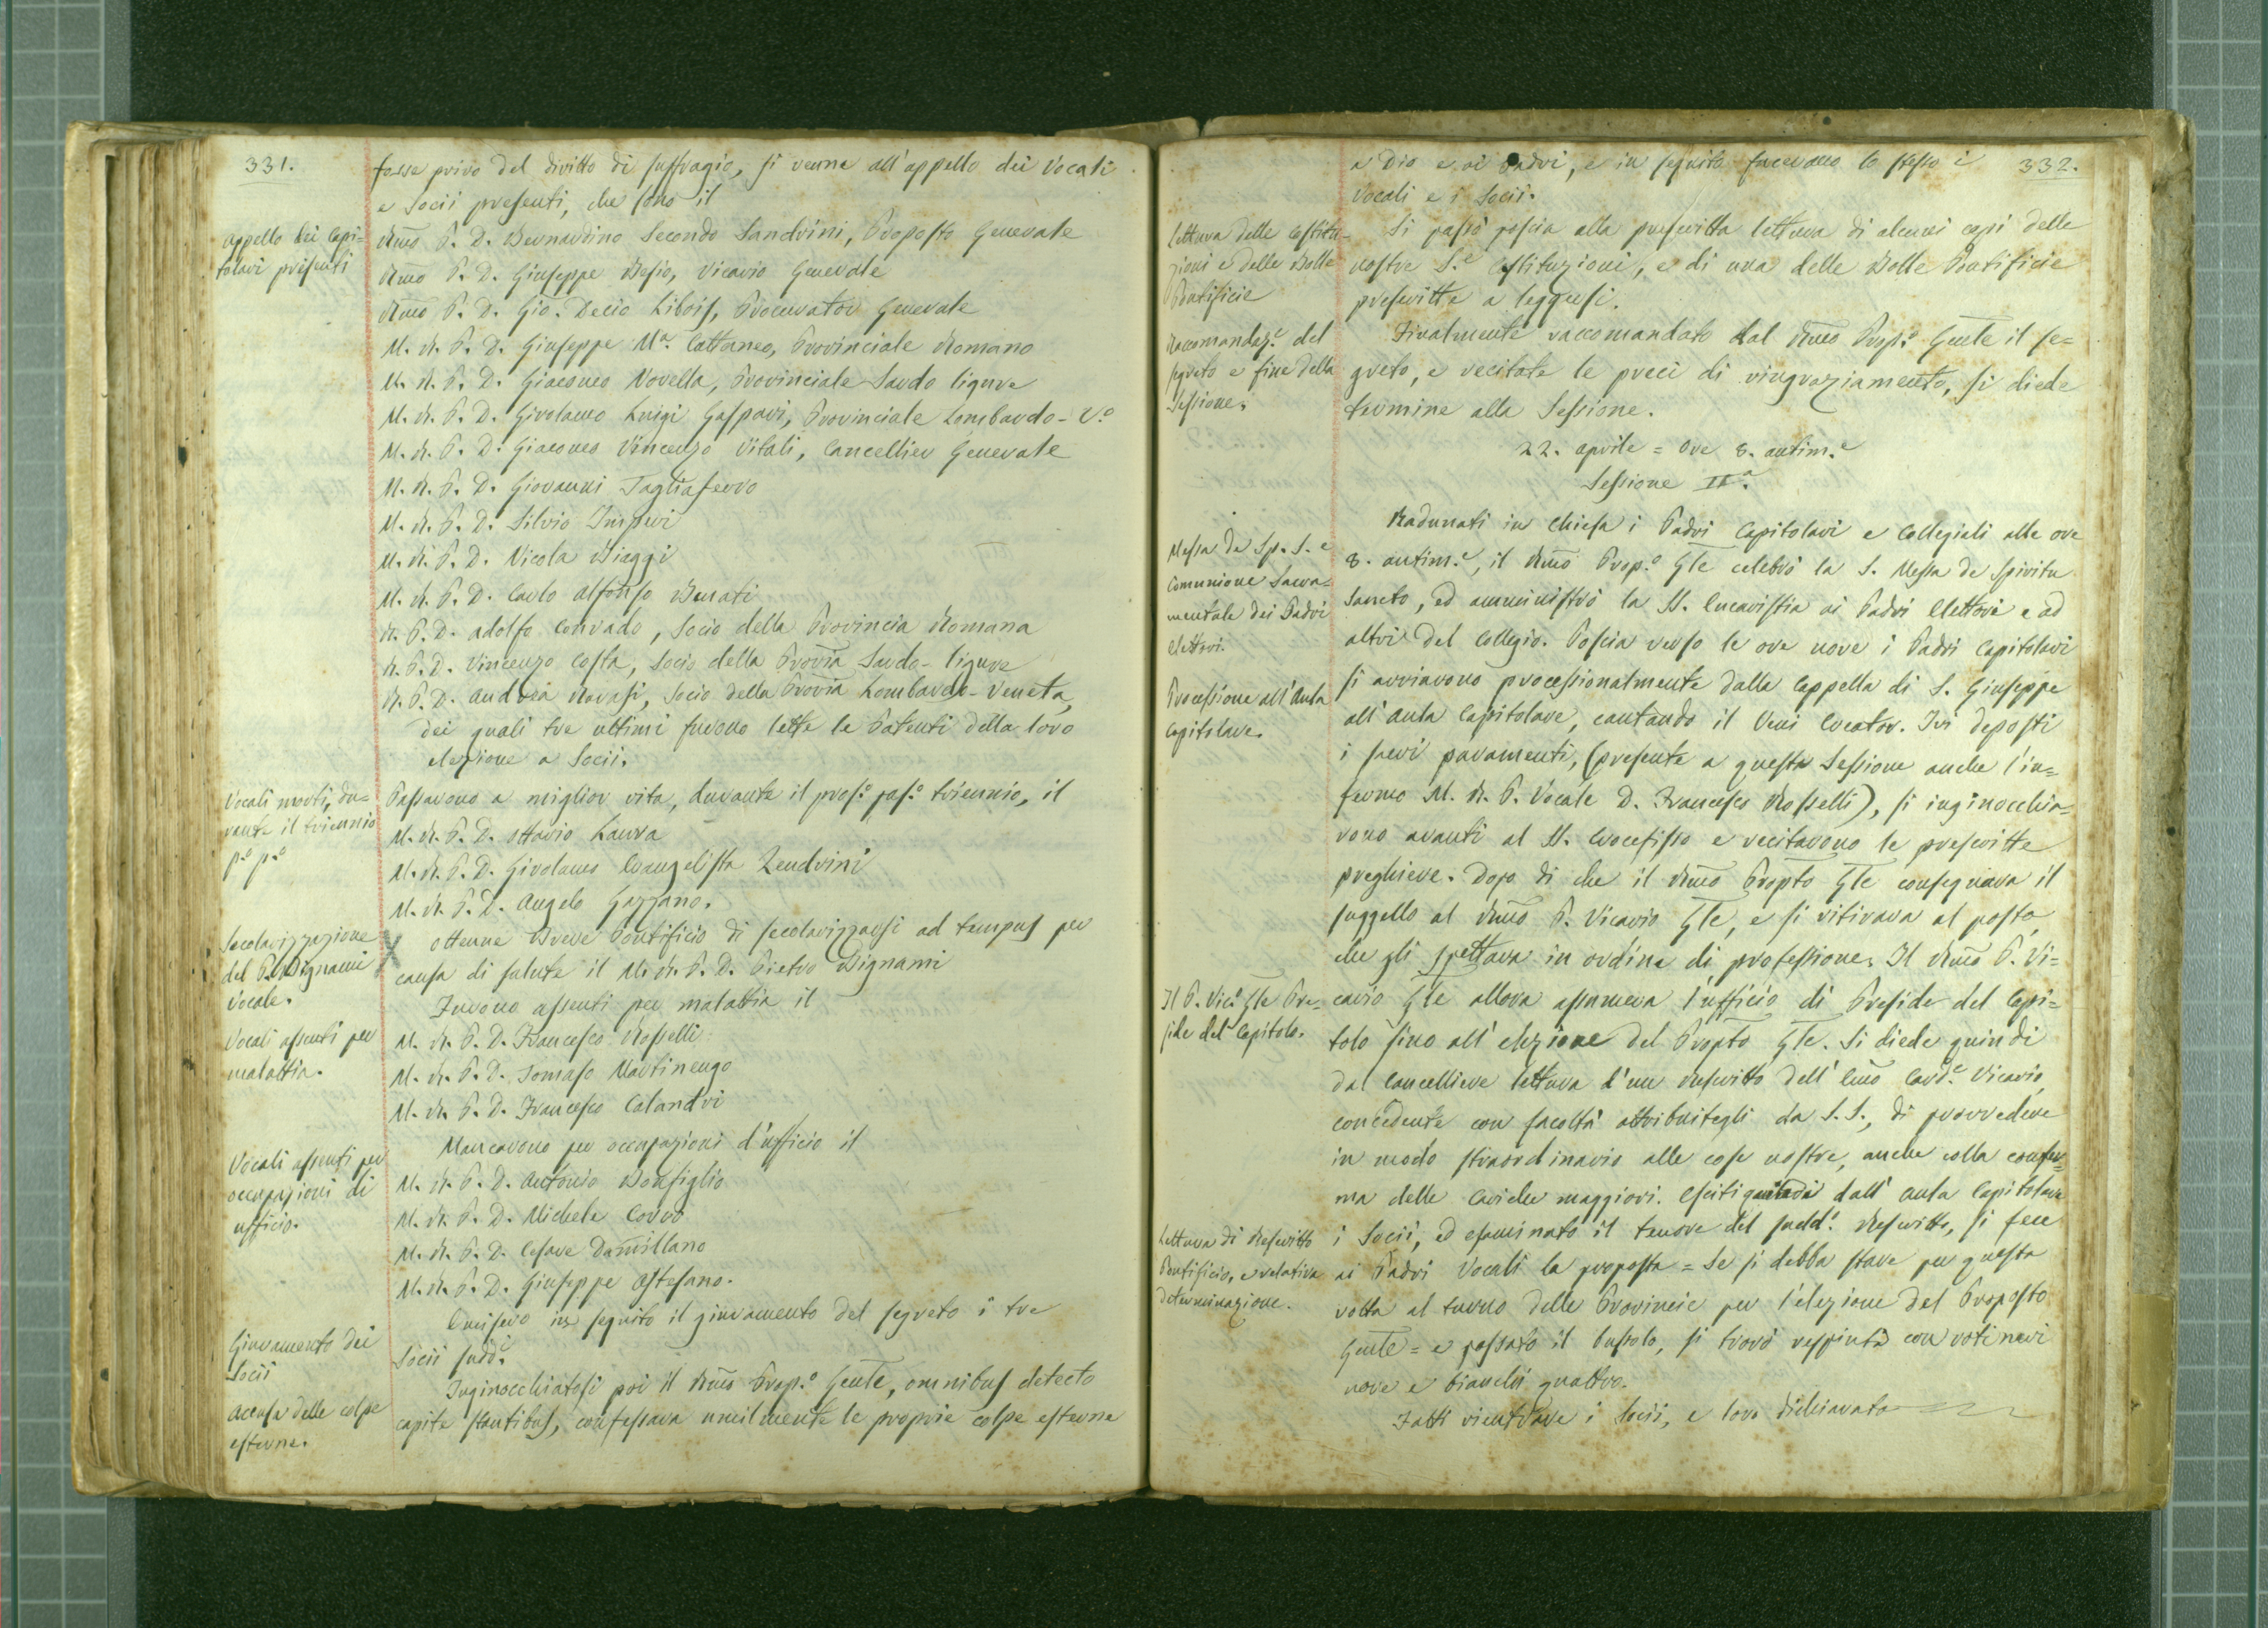 331.
fosse privo del diritto di suffragio, si venne all'appello dei Vocali
e Socii presenti, che sono il
Appello dei Capi=
tolari presenti
Rmo P. D. Bernardino Secondo Sandrini, Proposto Generale
Rmo P. D. Giuseppe Besio, Vicario Generale
Rmo P. D. Gio. Decio Libois, Procurator Generale
M. R. P. D. Giuseppe Mª. Cattaneo, Provinciale Romano
M. R. P. D. Giacomo Novella, Provinciale Sardo ligure
M. R. P. D. Girolamo Luigi Gaspari, Provinciale Lombardo-V.º
M. R. P. D. Giacomo Vincenzo Vitali, Cancellier Generale
M. R. P. D. Giovanni Tagliaferro
M. R. P. D. Silvio Imperi
M. R. P. D. Nicola Biaggi
M. R. P. D. Carlo Alfonso Benati
R. P. D. Adolfo Conrado, Socio della Provincia Romana
R. P. D. Vincenzo Costa, Socio della Provia Sardo-ligure
R. P. D. Andrea Ravasi, Socio della Provia Lombardo-Veneta,
dei quali tre ultimi furono lette le Patenti della loro
elezione a Socii.
Vocali morti, du=
rante il triennio
p.º p.º
Passarono a miglior vita, durante il pros.º pas.º triennio, il
M. R. P. D. Ottavio Laura
M. R. P. D. Girolamo Evangelista Zendrini
M. R. P. D. Angelo Gazzano.
Secolarizzazione
del P. Bignami
Vocale.
Ottenne Breve Pontificio di secolarizzarsi ad tempus per
causa di salute il M. R. P. D. Pietro Bignami
Vocali assenti per
malattia.
Furono assenti per malattia il
M. R. P. D. Francesco Rosselli
M. R. P. D. Tomaso Martinengo
M. R. P. D. Francesco Calandri
Vocali assenti per
occupazioni di
ufficio.
Mancarono per occupazioni d'ufficio il
M. R. P. D. Antonio Bonfiglio
M. R. P. D. Michele Corvo
M. R. P. D. Cesare Damillano
M. R. P. D. Giuseppe Ostesano.
Giuramento dei
Socii
Emisero in seguito il giuramento del segreto i tre
Socii sudd.i
Accusa delle colpe
esterne.
Inginocchiatosi poi il Rmo Prop.º Gente, omnibus detecto
capite stantibus, confessava umilmente le proprie colpe esterne
332.
a Dio e ai Padri, e in seguito facevano lo stesso i
Vocali e i Socii.
Lettura delle Costitu-
zioni e delle Bolle
Pontificie
Si passò poscia alla prescritta lettura di alcuni capi delle
nostre S.e Costituzioni, e di una delle Bolle Pontificie
prescritte a leggersi.
Raccomandaz.e del
segreto e fine della
Sessione.
Finalmente raccomandato dal Rmo Prop.º Gente il se=
greto, e recitate le preci di ringraziamento, si diede
termine alla Sessione.
22. aprile = Ore 8. antim.e
Sessione IIª.
Messa de Sp. S. e
Comunione Sacra=
mentale dei Padri
elettori.
Radunati in Chiesa i Padri Capitolari e Collegiali alle ore
8. antim.e, il Rmo Prop.º Gle celebrò la S. Messa de Spiritu
Sancto, ed amministrò la SS. Eucaristia ai Padri Elettori e ad
altri del Collegio. Poscia verso le ore nove i Padri Capitolari
Processione all'Aula
Capitolare.
si avviarono processionalmente dalla Cappella di S. Giuseppe
all'Aula Capitolare, cantando il Veni Creator. Ivi deposti
i sacri paramenti, (presente a questa Sessione anche l'in=
fermo M. R. P. Vocale D. Francesco Rosselli), si inginocchia=
rono avanti al SS. Crocefisso e recitarono le prescritte
preghiere. Dopo di che il Rmo Propto Gle consegnava il
suggello al Rmo P. Vicario Gle, e si ritirava al posto,
che gli spettava in ordine di professione. Il Rmo P. Vi=
Il P. Vic.º Gle Pre=
side del Capitolo.
cario Gle allora assumeva l'ufficio di Preside del Capi=
tolo sino all'elezione del Propto Gle. Si diede quindi
dal Cancelliere lettura d'un rescritto dell'Emo Card.e Vicario,
concedente con facoltà attribuitegli da S. S., di provvedere
in modo straordinario alle cose nostre, anche colla confer=
ma delle Cariche maggiori. Esciti quindi dall'Aula Capitolare
Lettura di Rescritto
Pontificio, e relativa
determinazione.
i Socii, ed esaminato il tenore del sudd.º Rescritto, si fece
ai Padri Vocali la proposta = Se si debba stare per questa
volta al turno delle Provincie per l'elezione del Proposto
Gente = e passato il bussolo, si trovò respinta con voti neri
nove e bianchi quattro.
Fatti rientrare i Socii, e loro dichiarato